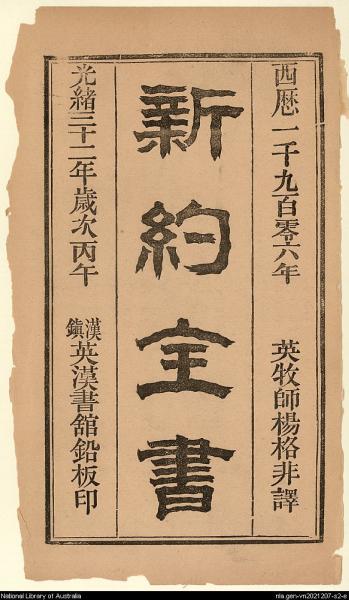 西歷一千九百零六年 英牧師楊格非譯
新約全書
光緒三十二年歲次丙午 漢鎮英漢書館鉛板印
National Library of Australia
nla.gen-vn2021207-s2-e